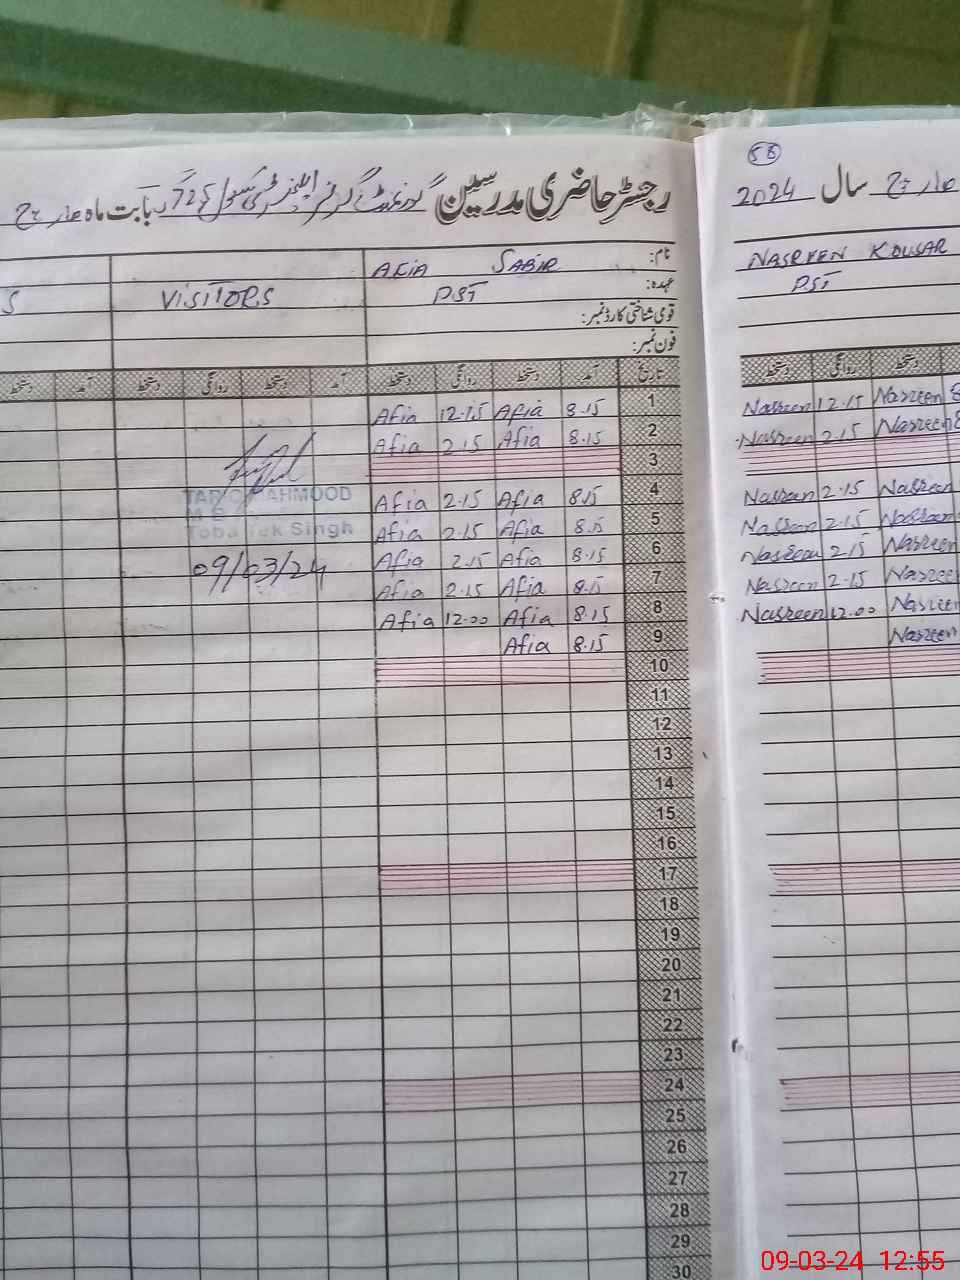 58
رجسٹر حاضری مدرسین گورنمنٹ گرلز ایلیمنٹری سکول 72 گ ب بابت ماہ مارچ
مارچ سال 2024
نام: AFIA SABIR
NASREEN KOUSAR
عہدہ: PST VISITORS S
PST
قومی شناختی کارڈ نمبر:
فون نمبر:
تاریخ آمد دستخط روانگی دستخط آمد دستخط روانگی دستخط آمد دستخط
دستخط روانگی دستخط
Afia 12.15 Afia 8.15 1
Nasreen 12.15 Nasreen 8
Afia 2.15 Afia 8.15 2
Nasreen 2.15 Nasreen 8
3
Afia 2.15 Afia 8.15 4
Nasreen 2.15 Nasreen
Afia 2.15 Afia 8.15 5
Nasreen 2.15 Nasreen
Afia 2.15 Afia 8.15 6
Nasreen 2.15 Nasreen
Afia 2.15 Afia 8.15 7
Nasreen 2.15 Nasreen
Afia 12.00 Afia 8.15 8
Nasreen 12.00 Nasreen
Afia 8.15 9
Nasreen
TARIQ MAHMOOD
Toba Tek Singh
09/03/24
10
11
12
13
14
15
16
17
18
19
20
21
22
23
24
25
26
27
28
29
30
09-03-24 12:55